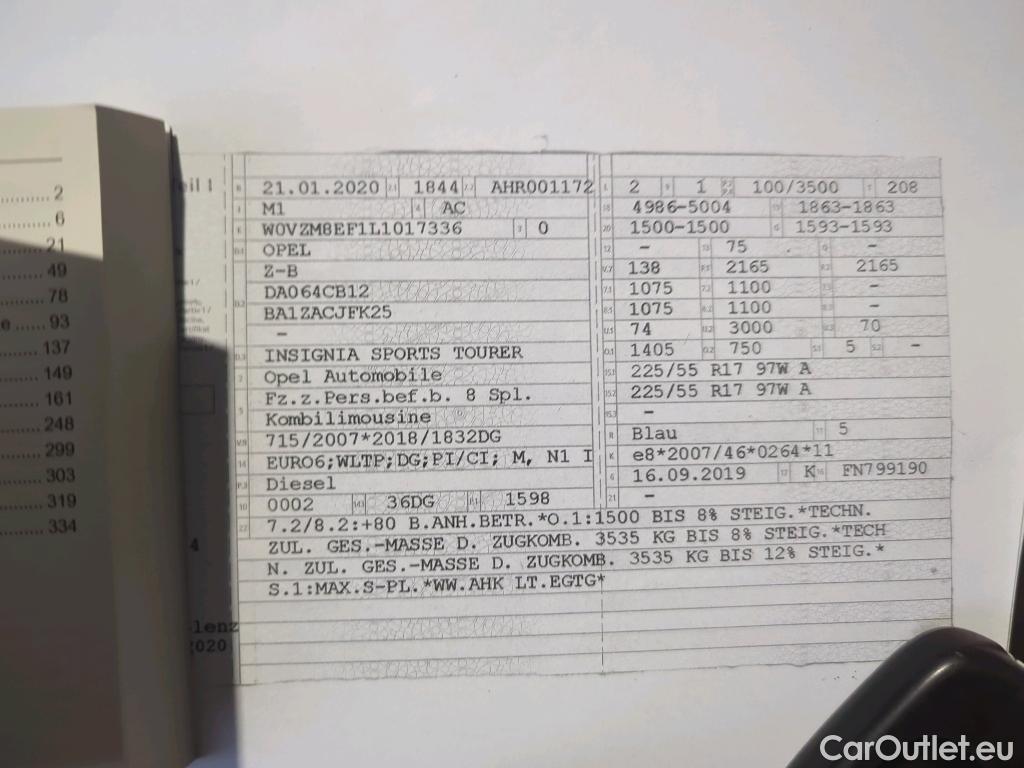 2
6
21
49
78
e ...... 93
137
149
161
248
299
303
319
334
eil 1
4
lenz
2020
21.01.2020 1844 AHR001172 2 1 100/3500 208
M1 AC 4986-5004 1863-1863
W0VZM8EF1L1017336 0 1500-1500 1593-1593
OPEL - 75 -
Z-B 138 2165 2165
DA064CB12 1075 1100 -
BA1ZACJFK25 1075 1100 -
- 74 3000 70
INSIGNIA SPORTS TOURER 1405 750 5 -
Opel Automobile 225/55 R17 97W A
Fz.z.Pers.bef.b. 8 Spl. 225/55 R17 97W A
Kombilimousine -
715/2007*2018/1832DG Blau 5
EURO6;WLTP;DG;PI/CI; M, N1 I e8*2007/46*0264*11
Diesel 16.09.2019 K FN799190
0002 36DG 1598 -
7.2/8.2:+80 B.ANH.BETR.*O.1:1500 BIS 8% STEIG.*TECHN.
ZUL. GES.-MASSE D. ZUGKOMB. 3535 KG BIS 8% STEIG.*TECH
N. ZUL. GES.-MASSE D. ZUGKOMB. 3535 KG BIS 12% STEIG.*
S.1:MAX.S-PL.*WW.AHK LT.EGTG*
CarOutlet.eu